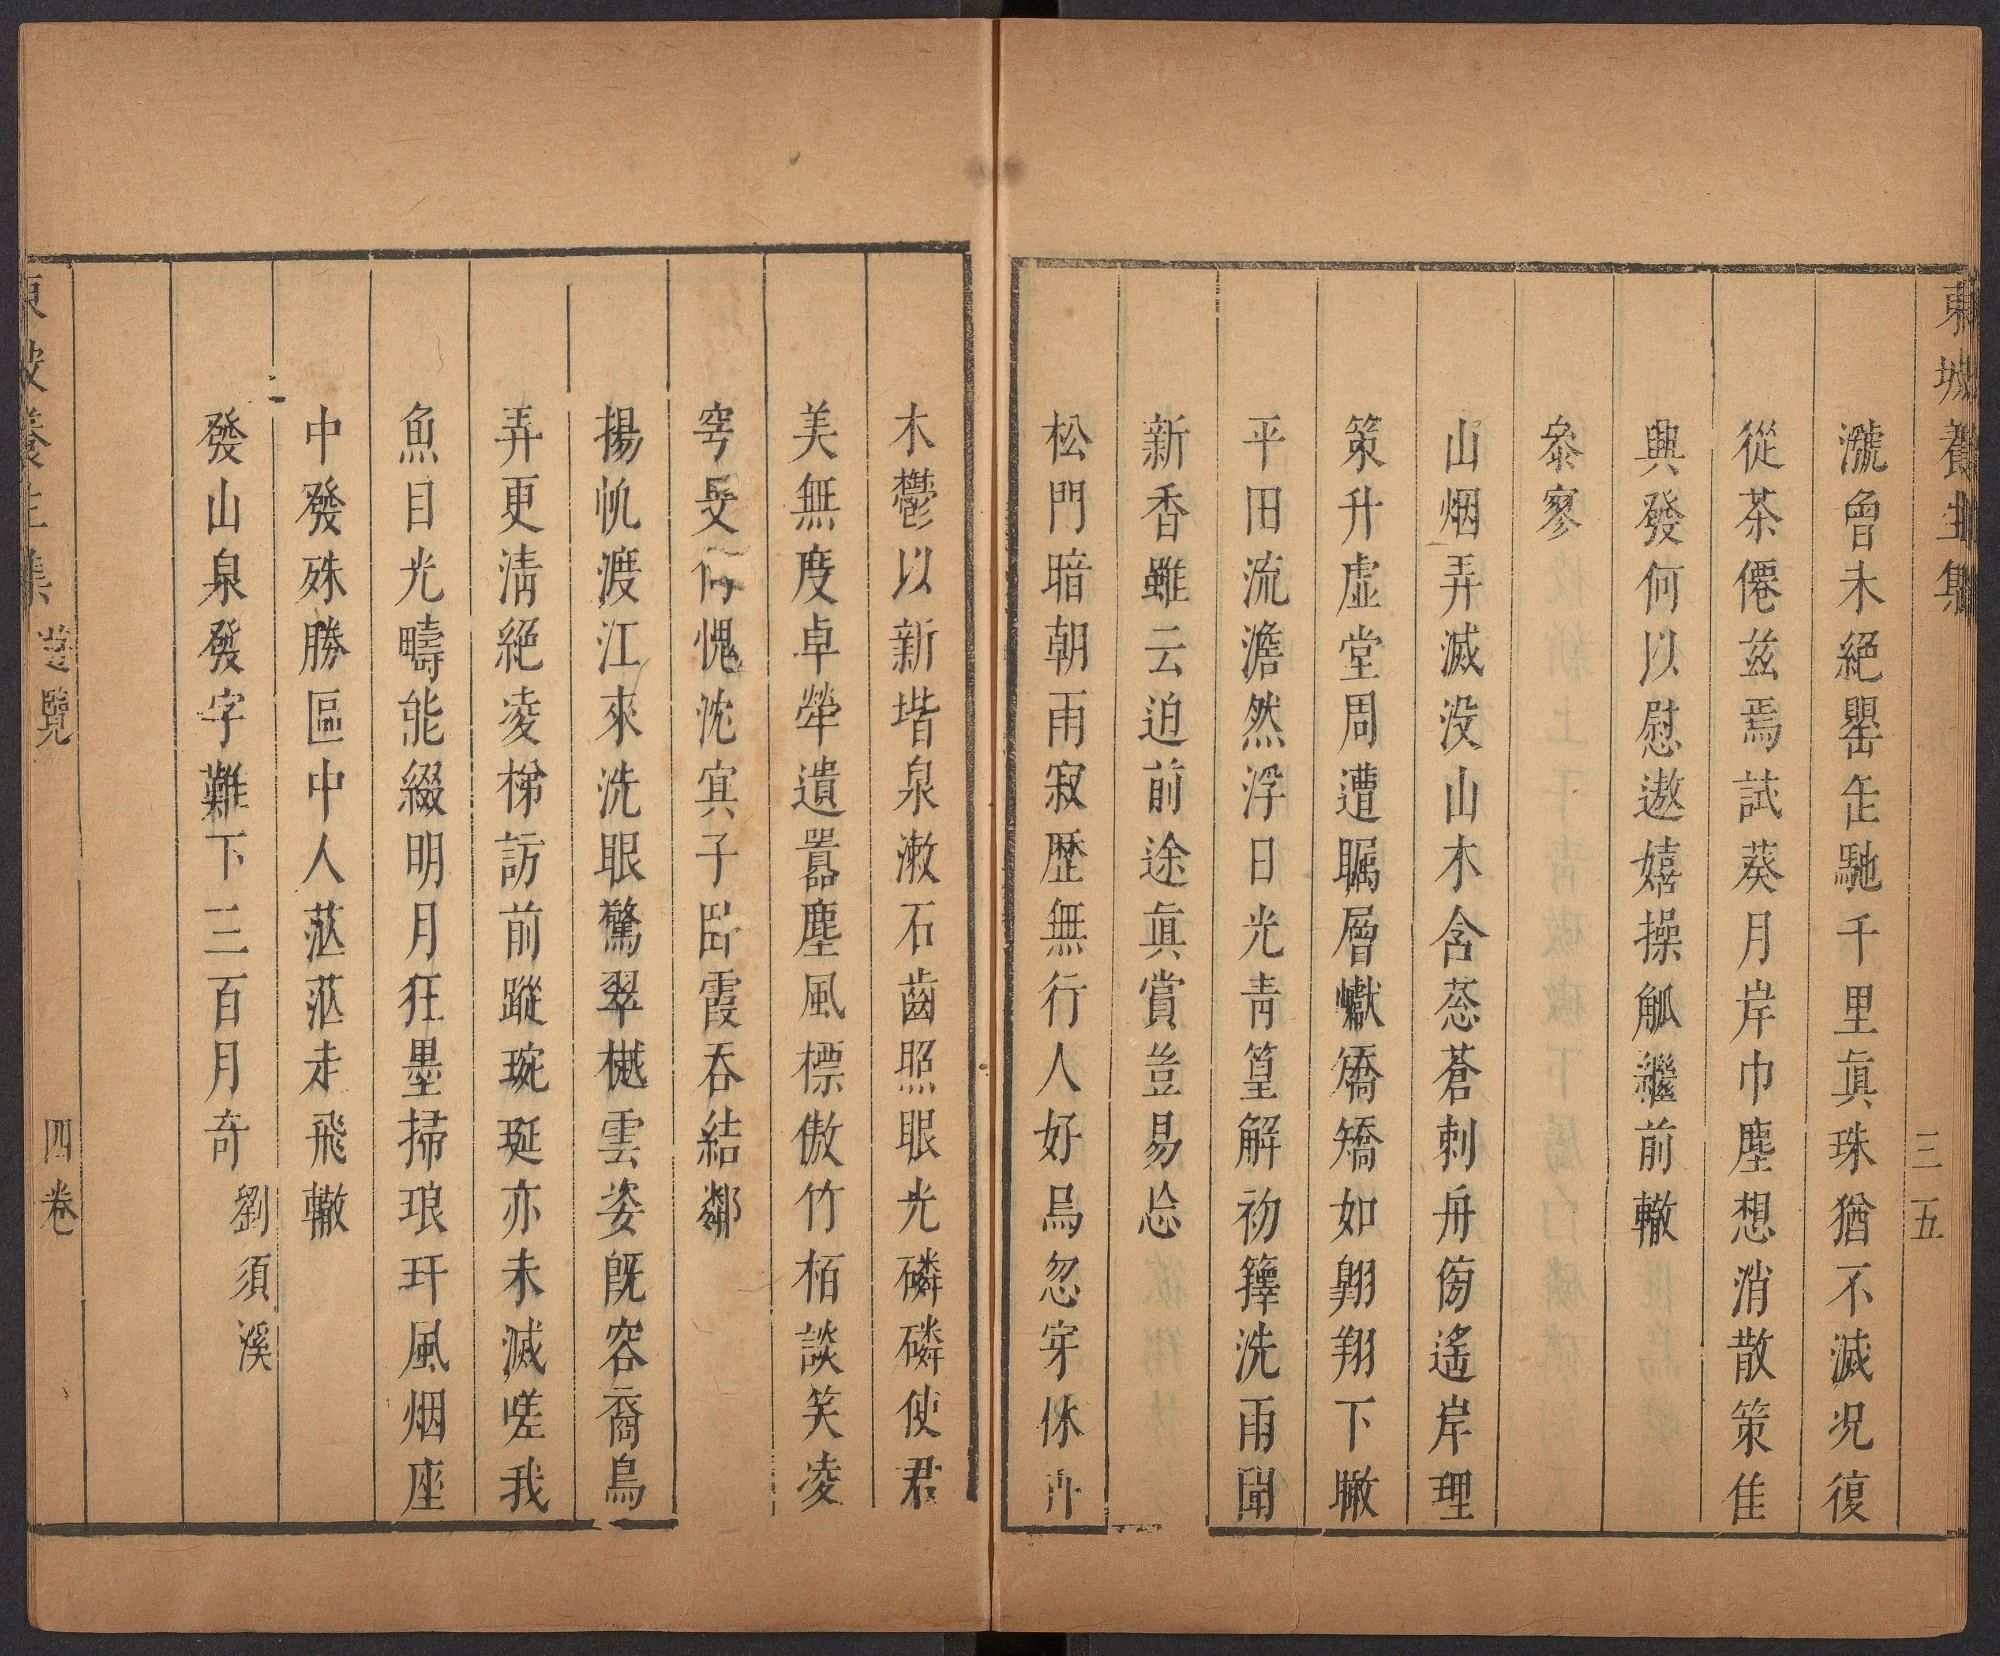 東坡養生集
三五
瀲曾未絕罌缶馳千里眞珠猶不滅况復
從茶僊茲焉試葵月岸巾塵想消散策佳
興發何以慰遨嬉操觚繼前轍
叅寥
山烟弄滅没山木含蒼刺舟傍遙岸理
策升虛堂周遭矚層巘矯矯如翺翔下瞰
平田流澹然浮日光靑篁解初籜洗雨聞
新香雖云迫前途眞賞豈易忘
松門暗朝雨寂歴無行人好鳥忽穿休卉
木鬱以新堦泉漱石齒照眼光磷磷使君
美無度卓犖遺囂塵風標傲竹栢談笑凌
穹旻何愧沈㝠子卧霞吞結鄰
揚帆渡江來洗眼驚翠樾雲姿旣容裔鳥
弄更淸絕凌梯訪前蹤琬琰亦未滅嗟我
魚目光疇能綴明月狂墨掃琅玕風烟座
中發殊勝區中人茫茫走飛轍
發山泉發字難下三百月奇 劉須溪
東坡養生集 遊覽 四卷